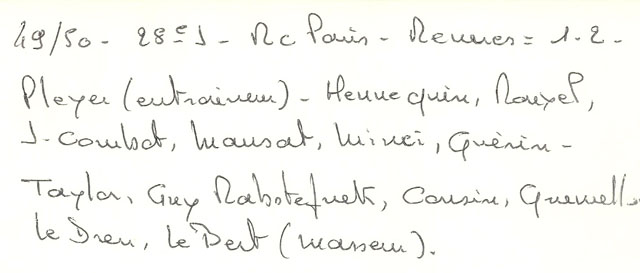 49/50 - 28e J - Rc Paris - Rennes = 1-2 -
Pleyer (entraineur) - Hennequin, Rouxel,
J. Combot, Mansat, Minci, Guérin -
Taylor, Guy Rabstejnek, Cousin,
Le Dreu, le Bert (masseur).